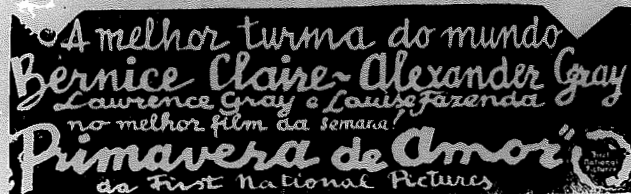 A melhor turma do mundo
Bernice Claire - Alexander Gray
Lawrence Gray e Louise Fazenda
no melhor film da semana!
"Primavera de Amor"
da First National Pictures
First
National
Pictures